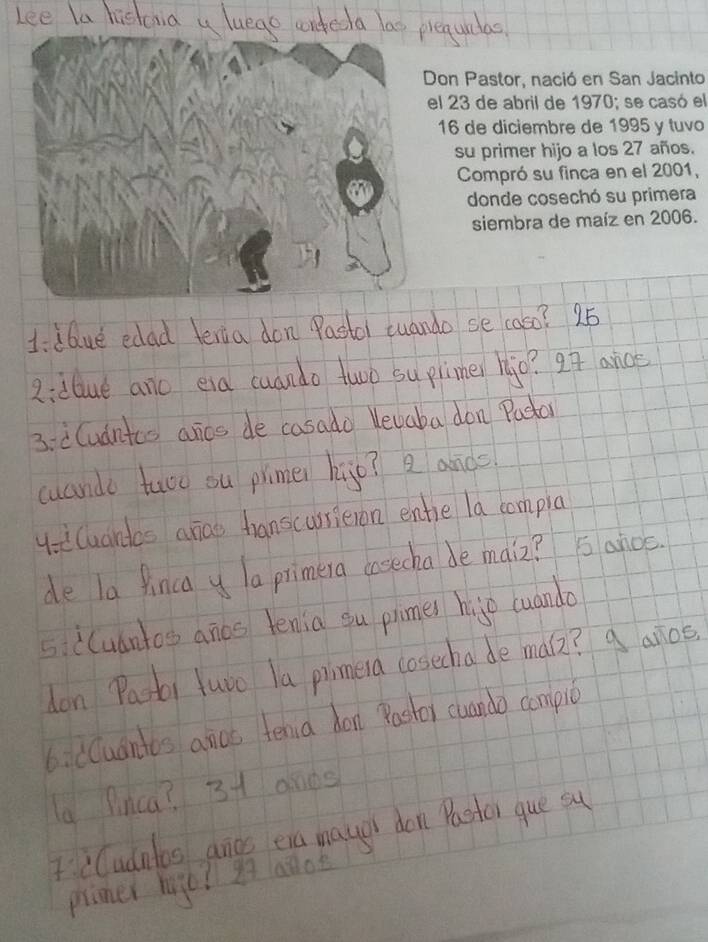 Lee la historia y luego contesta las preguntas.
Don Pastor, nació en San Jacinto
el 23 de abril de 1970; se casó el
16 de diciembre de 1995 y tuvo
su primer hijo a los 27 años.
Compró su finca en el 2001,
donde cosechó su primera
siembra de maíz en 2006.
1-¿Qué edad tenia don Pastor cuando se caso? 25
2-¿Qué año era cuando tuvo su primer hijo? 27 años
3-¿Cuántos años de casado llevaba don Pastor
cuando tuvo su primer hijo? 2 años.
4-¿Cuántos años transcurrieron entre la compra
de la finca y la primera cosecha de maiz? 5 años.
5-¿Cuantos años tenia su primer hijo cuando
don Pastor tuvo la primera cosecha de maiz? 9 años.
6-¿Cuántos años tenia don Pastor cuando compró
la finca? 31 años
7-¿Cuántos años era mayor don Pastor que su
primer hijo? 27 años